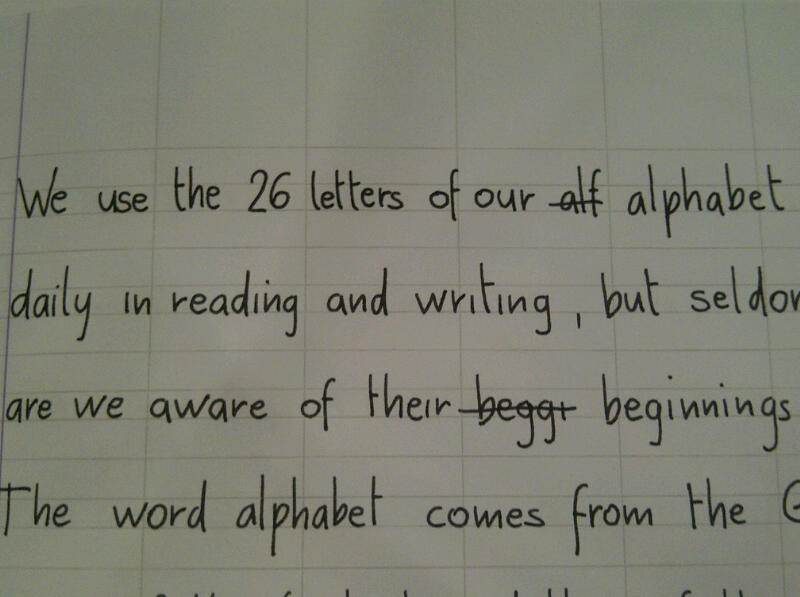 We use the 26 letters of our alf alphabet
daily in reading and writing, but seldom
are we aware of their beggt beginnings
The word alphabet comes from the G